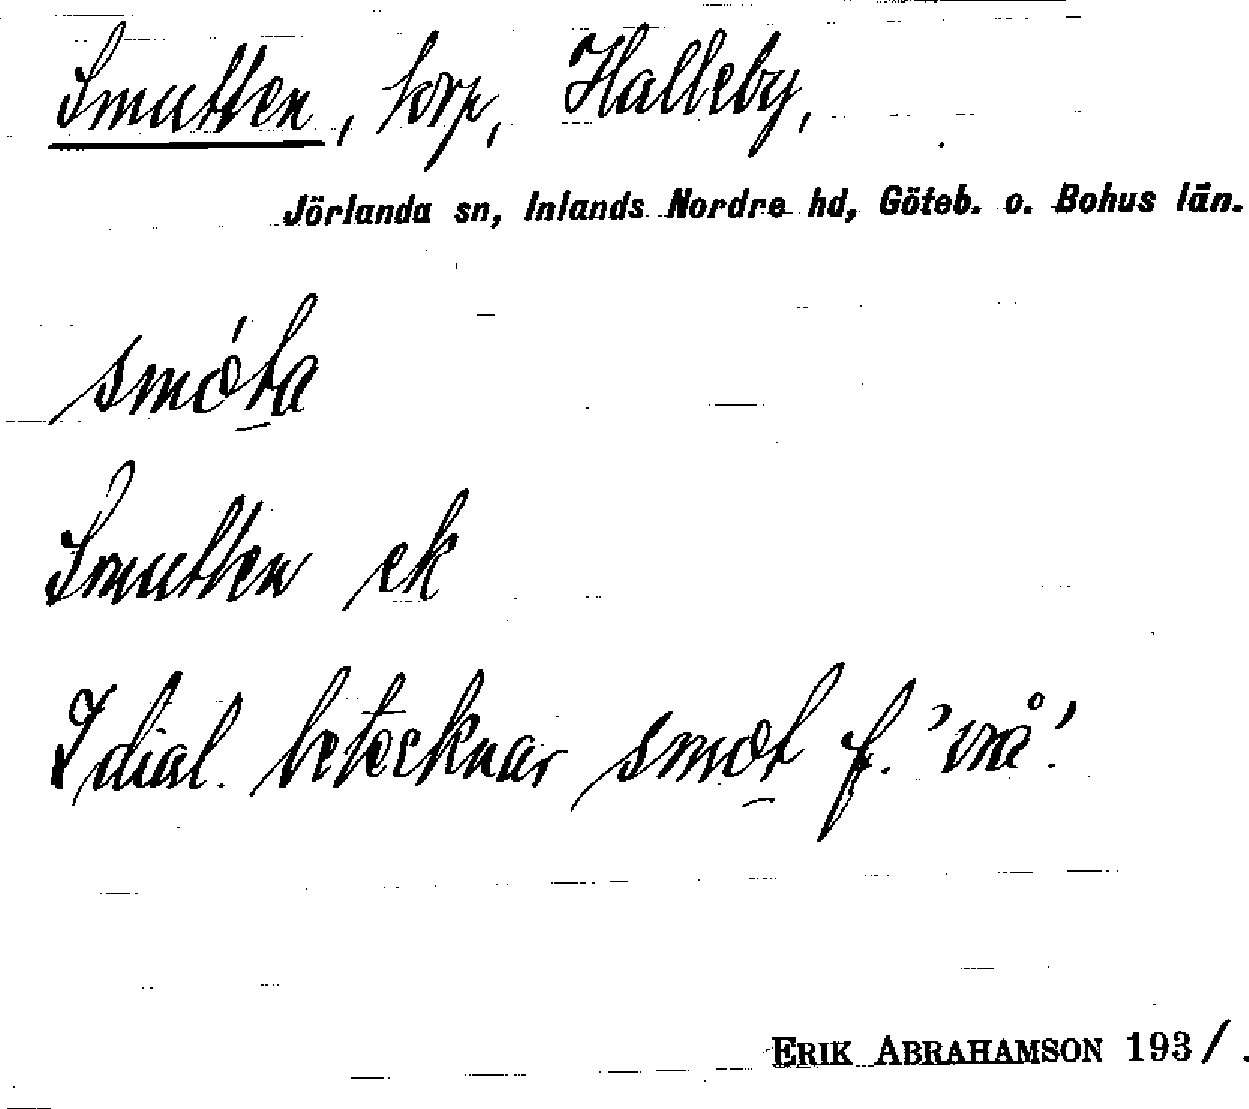 Smutten, torp, Halleby,
Jörlanda sn, Inlands Nordre hd, Göteb. o. Bohus län.
smo̱´ta
Smutten ek
I dial. betecknar smo̱t f. 'vrå'.
ERIK ABRAHAMSON 1931.